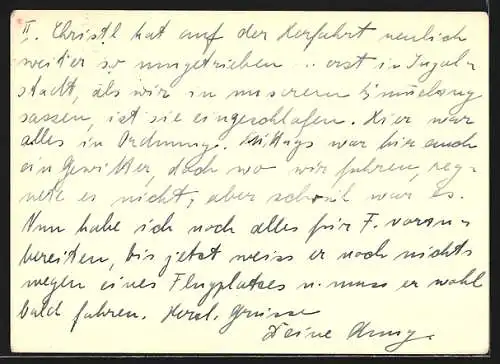 II. Christl hat auf der Herfahrt neulich
weiter so umgetrieben .. erst in Ingol=
stadt, als wir in unserem
sassen, ist sie eingeschlafen. Hier war
alles in Ordnung. Mittags war hier auch
ein Gewitter, doch wo wir fuhren, reg=
nete es nicht, aber schwül war es.
Nun habe ich noch alles für F. vorzu=
bereiten, bis jetzt weiss er noch nichts
wegen eines Flugplatzes u. muss er wohl
bald fahren. Herzl. Grüsse
Deine